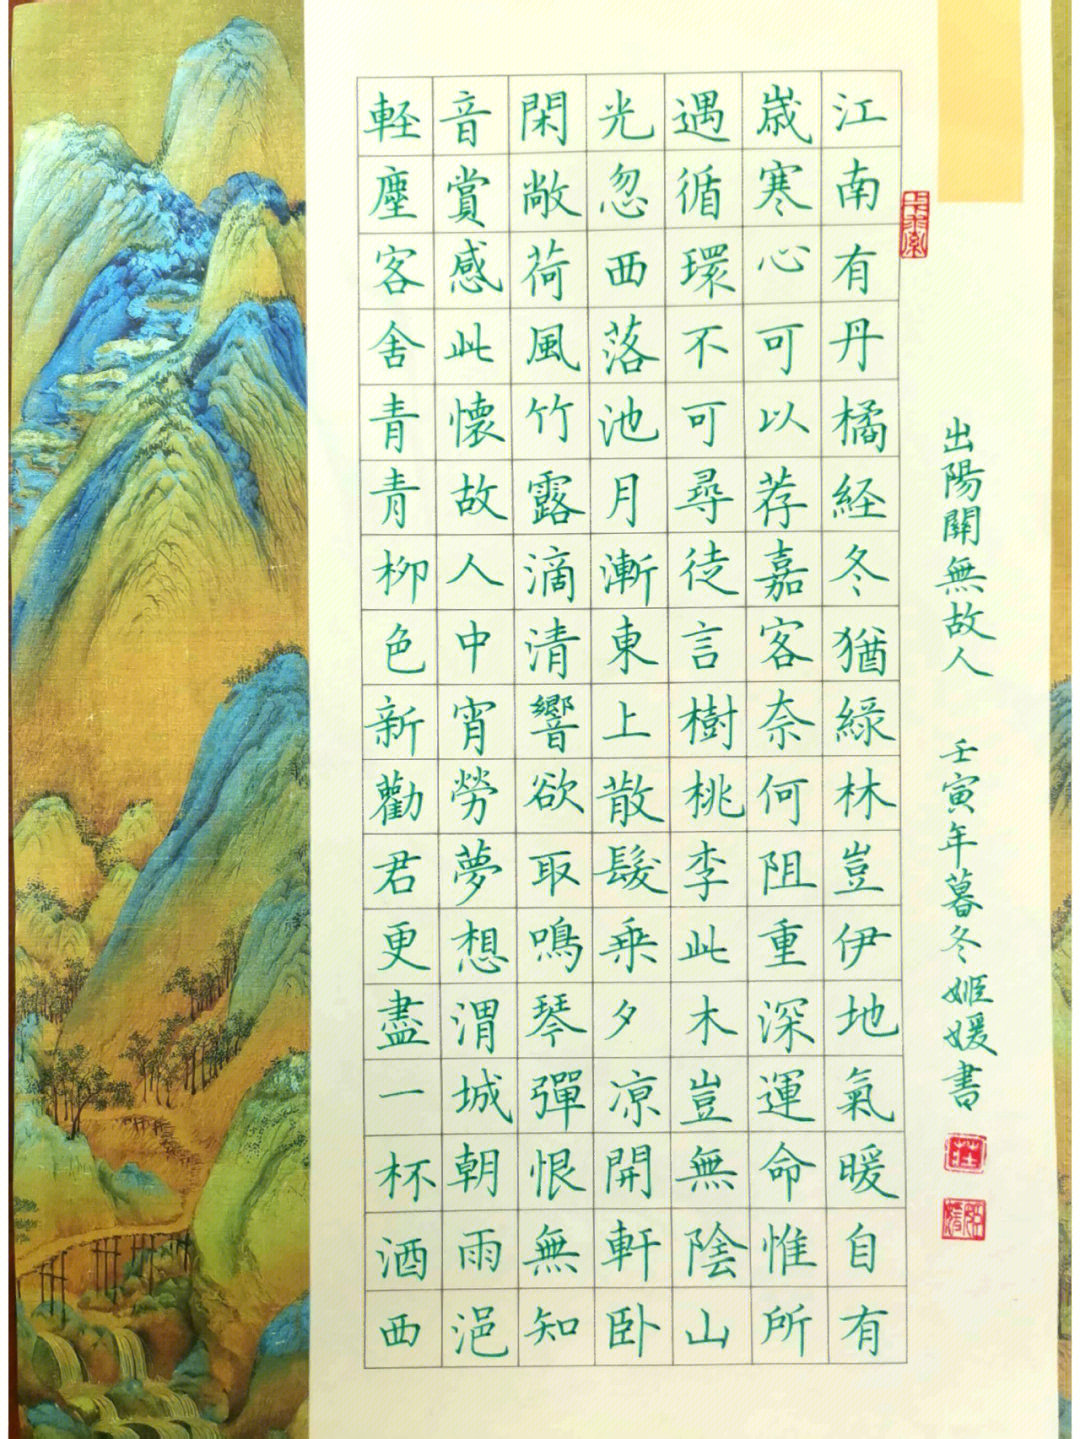 江南有丹橘経冬猶緑林豈伊地氣暖自有
歳寒心可以荐嘉客奈何阻重深運命惟所
遇循環不可尋徒言樹桃李此木豈無陰山
光忽西落池月漸東上散髮乗夕凉開軒卧
閑敞荷風竹露滴清響欲取鳴琴彈恨無知
音賞感此懷故人中宵勞夢想渭城朝雨浥
軽塵客舍青青柳色新勸君更盡一杯酒西
出陽關無故人 壬寅年暮冬姬媛書